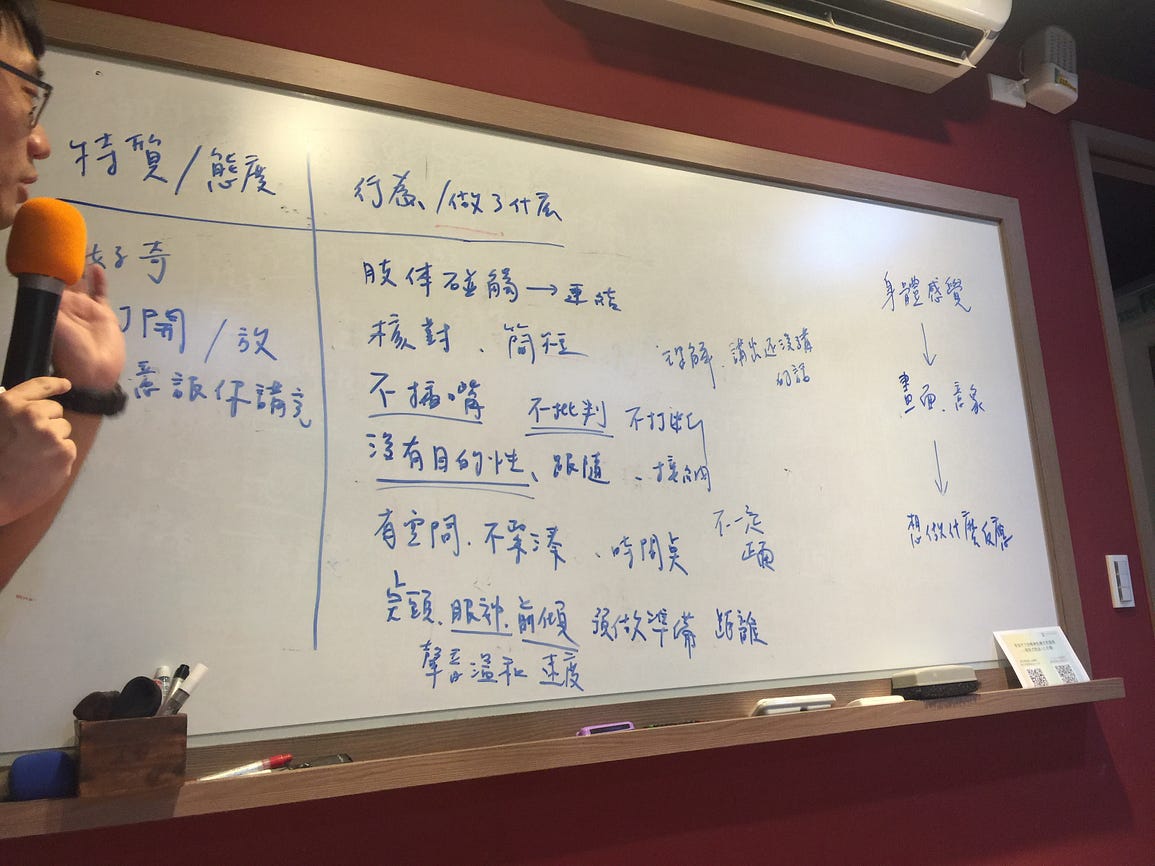 特質/態度
好奇
開/放
意談你講完
行為/做了什麼
肢体碰觸→連結
核對、簡短
不插嘴 不批判 不打斷
沒有目的性、跟隨、接納
有空間、不緊湊、時間點 不一定
正面
點頭、眼神、前傾 預做準備 距離
聲音溫和 速度
理解、講出還沒講
的話
身體感覺
↓
畫面、意象
↓
想做什麼反應